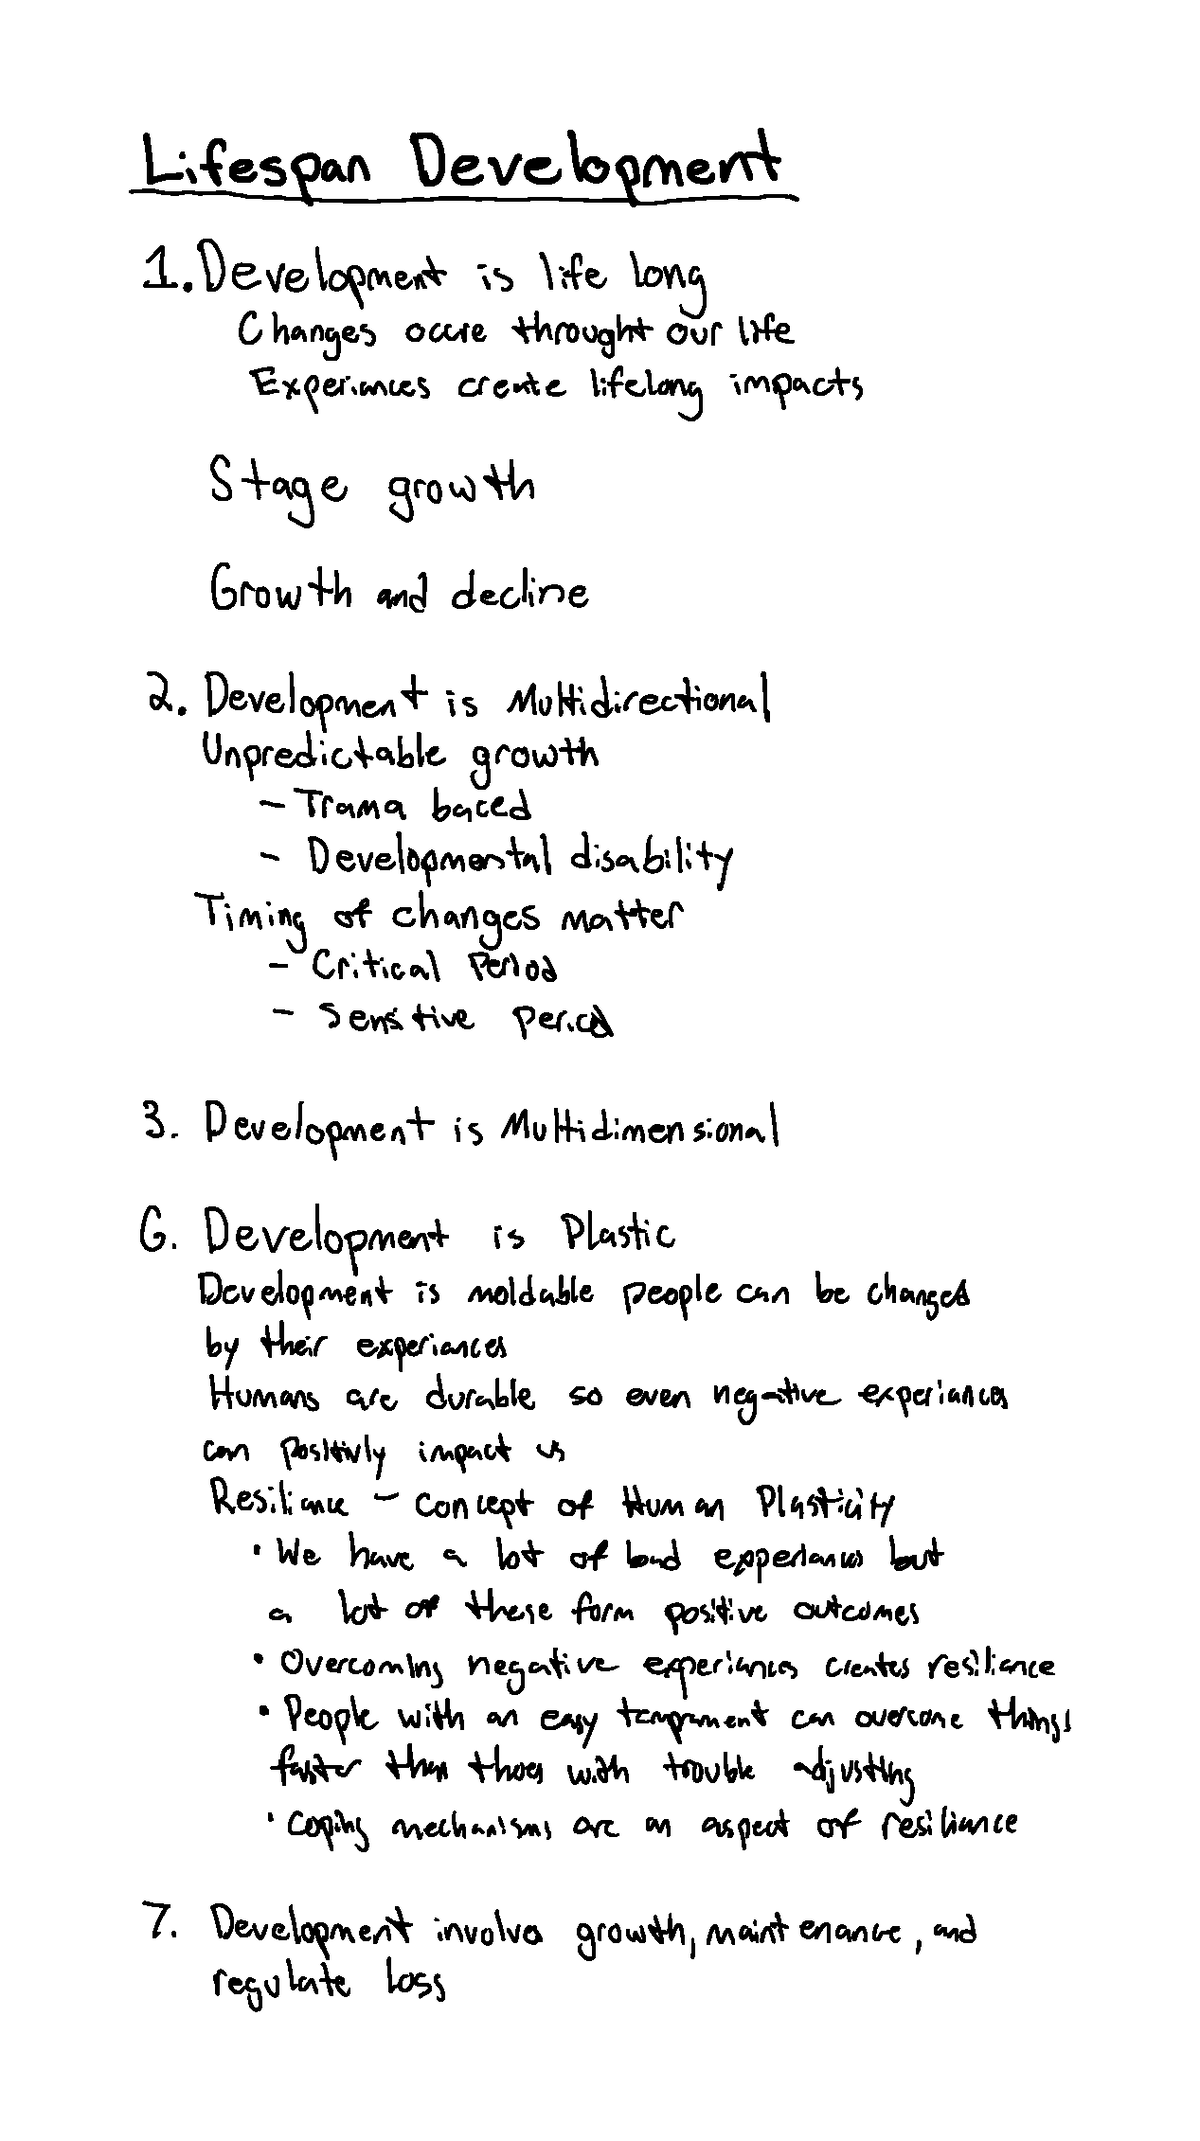 Lifespan Development
1. Development is life long
Changes occre throught our life
Experiances create lifelong impacts
Stage growth
Growth and decline
2. Development is Multidirectional
Unpredictable growth
- Trama baced
- Developmental disability
Timing of changes matter
- Critical Period
- Sensitive period
3. Development is Multidimensional
6. Development is Plastic
Development is moldable people can be changed
by their experiances
Humans are durable so even negative experiances
can positivly impact us
Resiliance - concept of Human Plasticity
• We have a lot of bad experiances but
a lot of these form positive outcomes
• Overcoming negative experiances creates resiliance
• People with an easy temperment can overcome things
faster than thoes with trouble adjusting
• Coping mechanisms are an aspect of resiliance
7. Development involve growth, maintenance, and
regulate loss